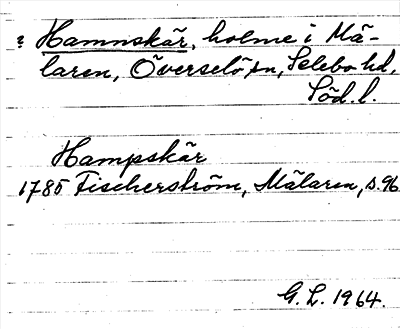 ? Hamnskär, holme i Mä-
laren, Överselö sn, Selebo hd,
Söd. l.
Hampskär
1785 Fischerström, Mälaren, s. 96
G. L. 1964.